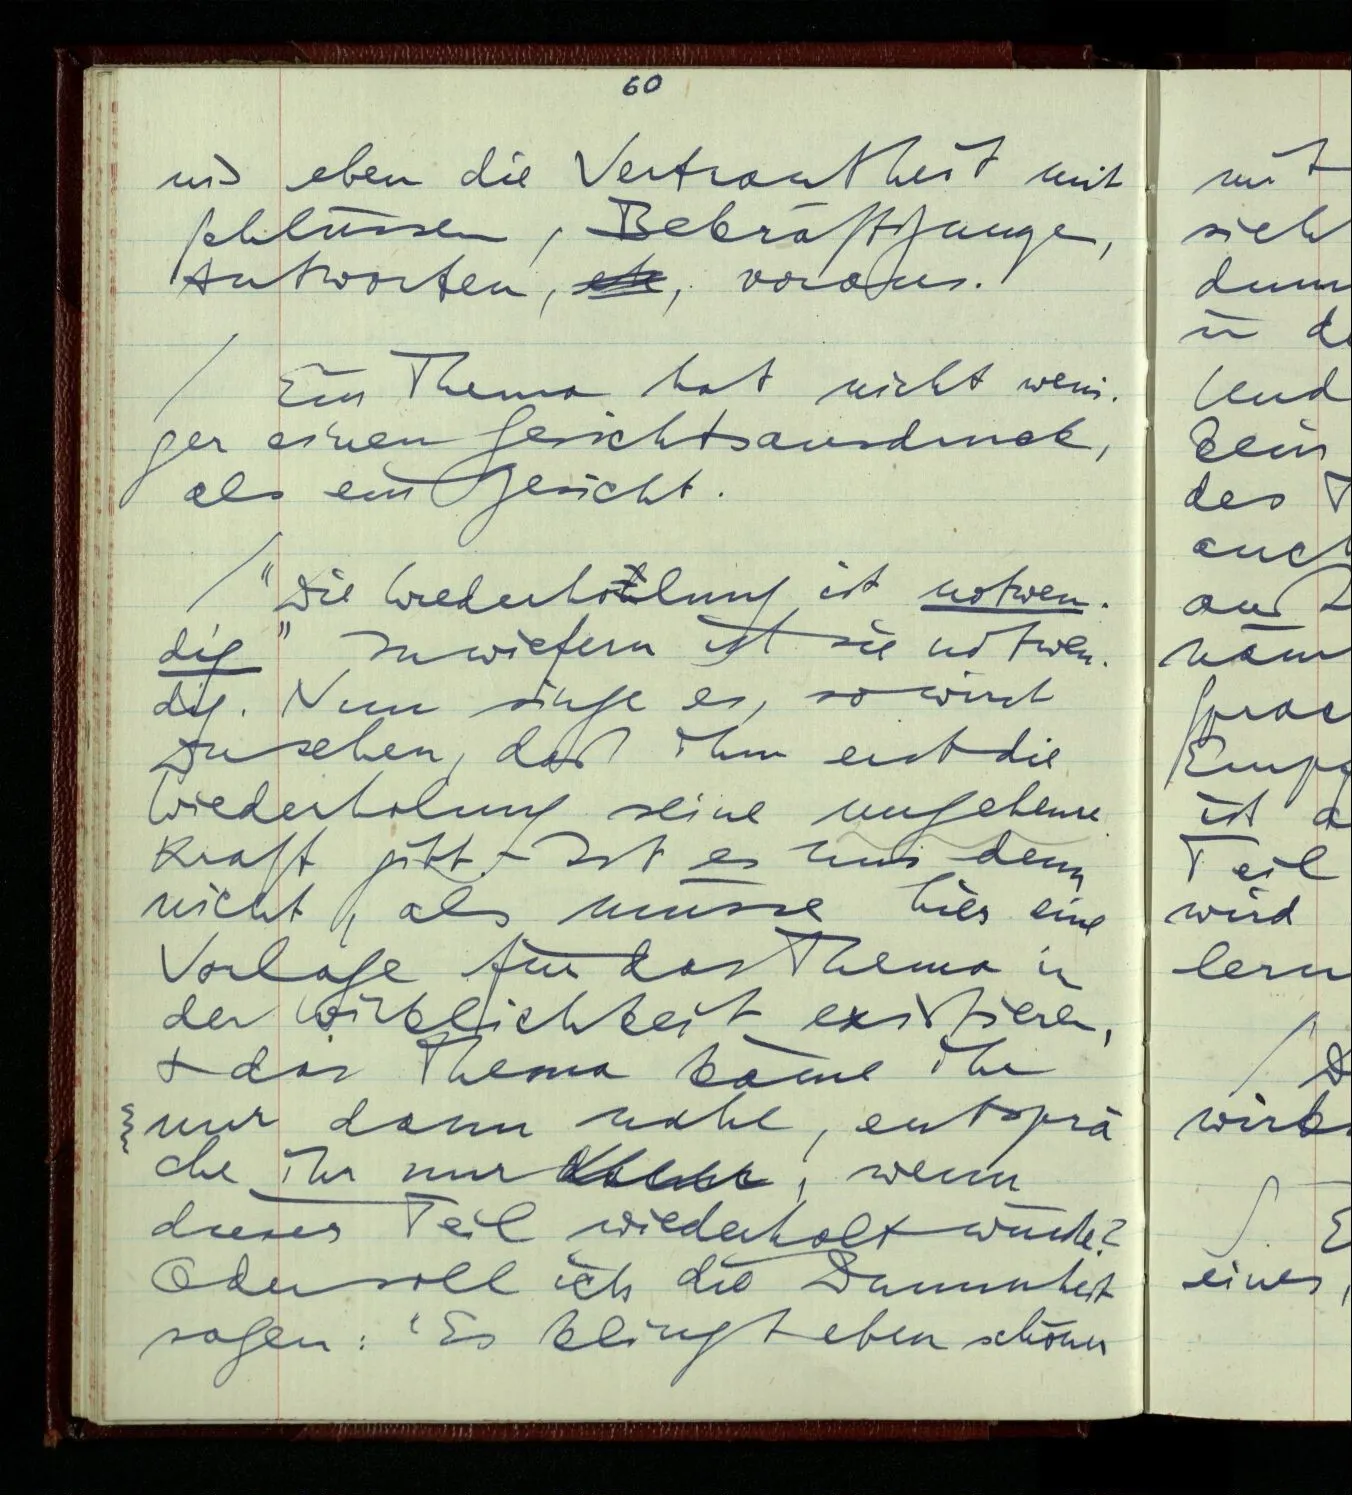 60
und eben die Vertrautheit mit
Schlüssen, Bekräftigungen,
Antworten, etc, voraus.
/ Ein Thema hat nicht weni-
ger einen Gesichtsausdruck,
als ein Gesicht.
/ "Die Wiederholung ist notwen-
dig" Inwiefern ist sie notwen-
dig. Nun singe es, so wirst
Du sehen, daß ihm erst die
Wiederholung seine ungeheure
Kraft gibt. – Ist es uns denn
nicht, als müsse hier eine
Vorlage für das Thema in
der Wirklichkeit existieren,
+ das Thema käme ihr
nur dann nahe, entsprä
che ihr nur, wenn
dieser Teil wiederholt würde?
Oder soll ich die Dummheit
sagen: "Es klingt eben schöner
mit
sich
dum
in de
Und
kein
des T
auch
aus
näm
Sprac
Empf
ist a
Teil
wird
lern
/
wirk
∫. E
eines,